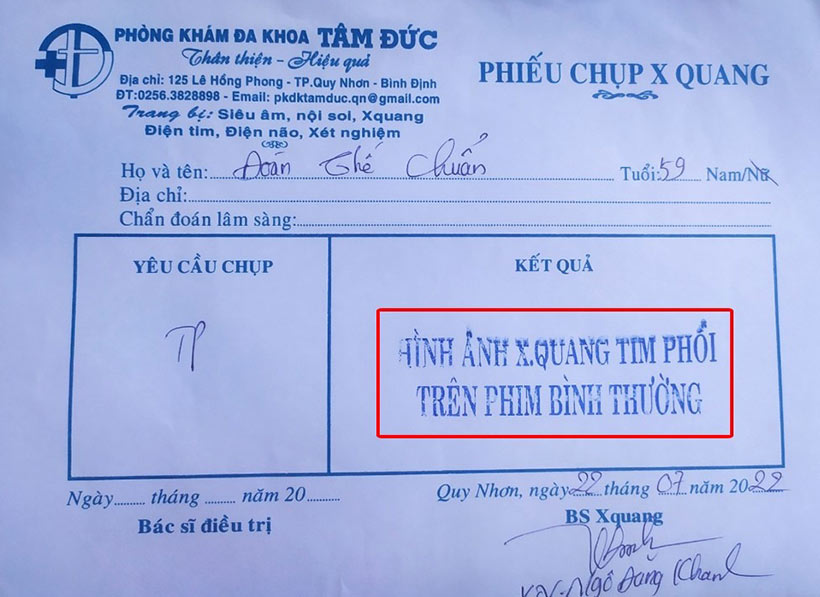 PHÒNG KHÁM ĐA KHOA TÂM ĐỨC
Thân thiện - Hiệu quả
Địa chỉ: 125 Lê Hồng Phong - TP.Quy Nhơn - Bình Định
ĐT:0256.3828898 - Email: pkdktamduc.qn@gmail.com
Trang bị: Siêu âm, nội soi, Xquang
Điện tim, Điện não, Xét nghiệm
PHIẾU CHỤP X QUANG
Họ và tên: Đoàn Thế Chuẩn Tuổi: 59 Nam/Nữ
Địa chỉ:
Chẩn đoán lâm sàng:
YÊU CẦU CHỤP
TP
KẾT QUẢ
HÌNH ẢNH X.QUANG TIM PHỔI
TRÊN PHIM BÌNH THƯỜNG
Ngày......... tháng ......... năm 20..........
Bác sĩ điều trị
Quy Nhơn, ngày 22 tháng 07 năm 2022
BS Xquang
Ngô Đang Khanh